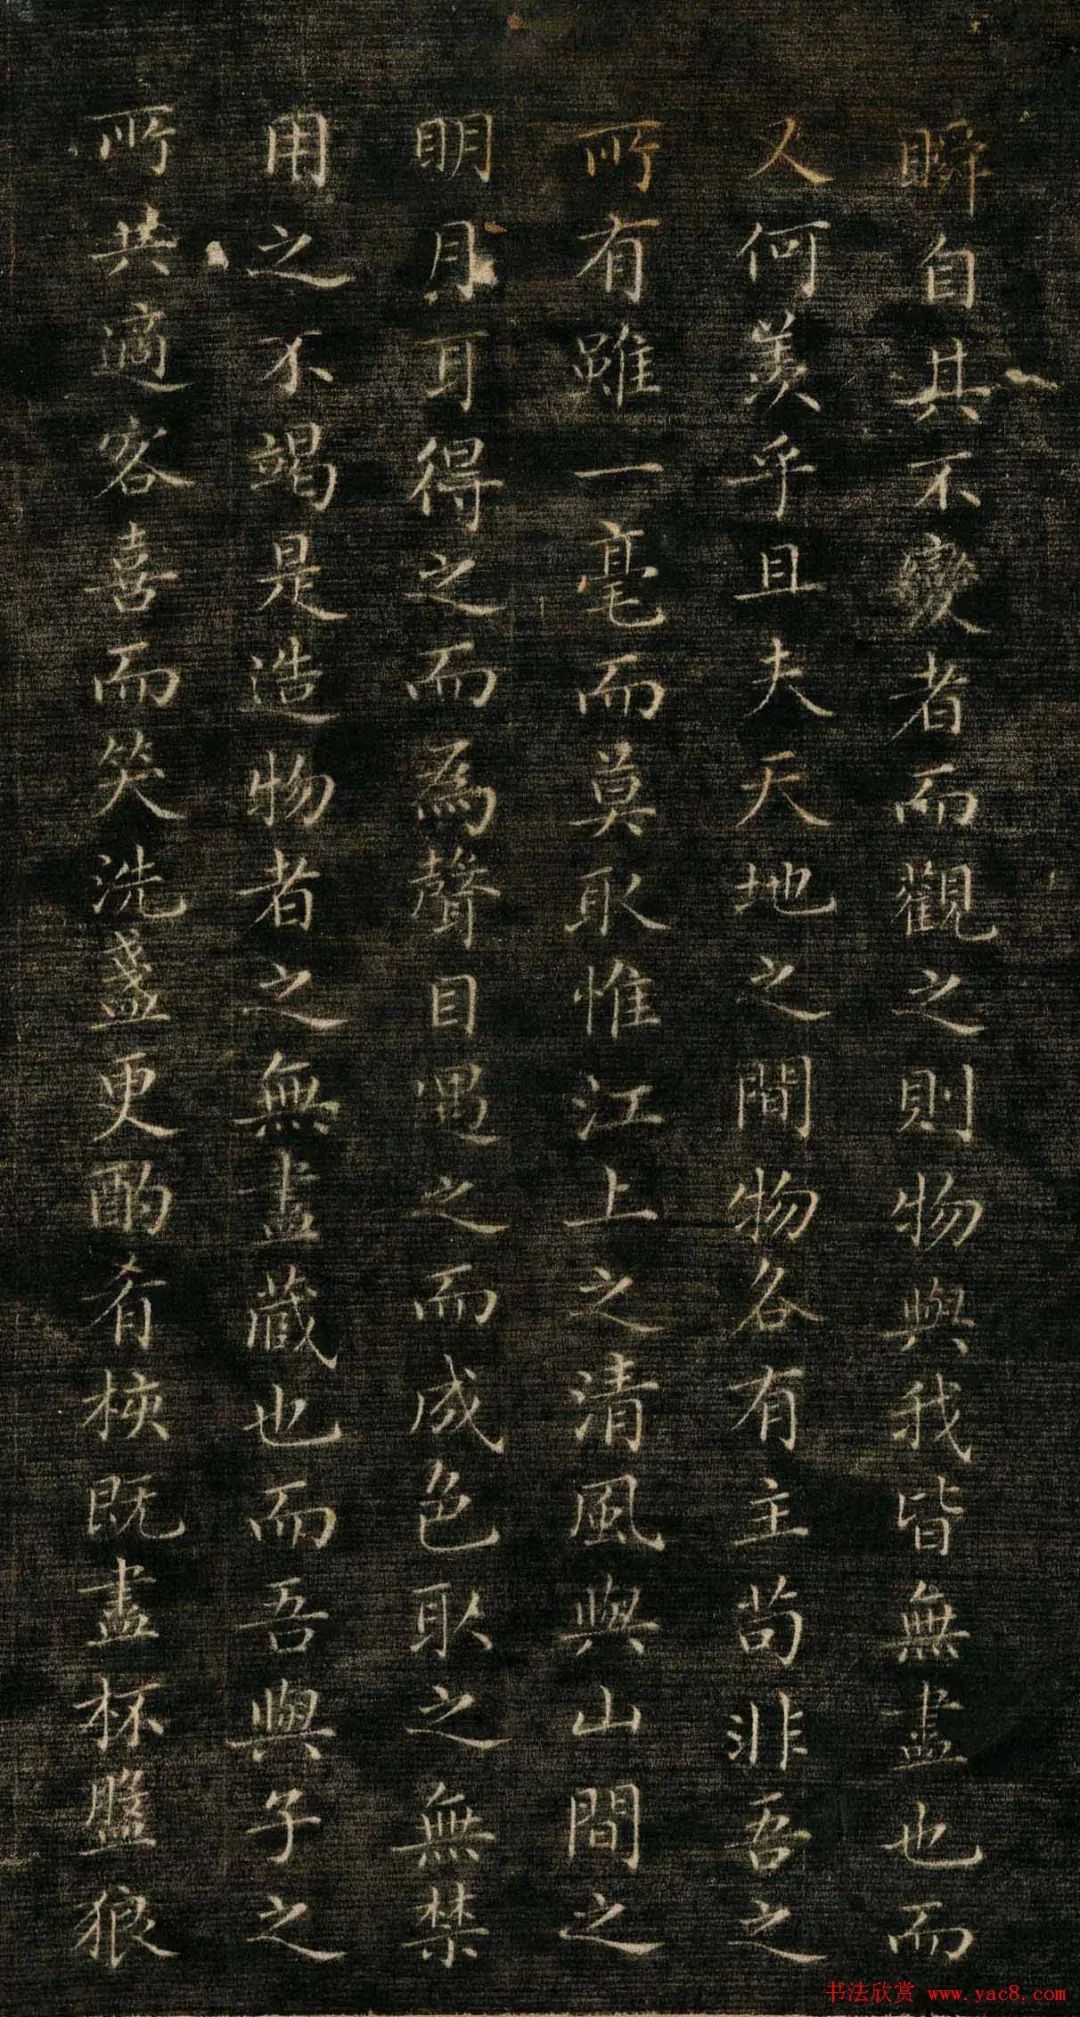 瞬自其不變者而觀之則物與我皆無盡也而
人何羨乎且夫天地之間物各有主苟非吾之
所有雖一毫而莫取惟江上之清風與山間之
明月耳得之而為聲目遇之而成色取之無禁
用之不竭是造物者之無盡藏也而吾與子之
所共適客喜而笑洗盞更酌肴核既盡杯盤狼
书法欣赏 www.yac8.com